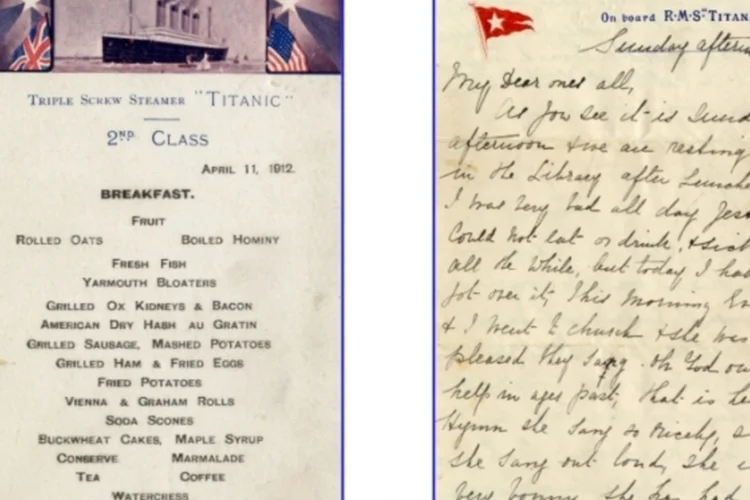 TRIPLE SCREW STEAMER "TITANIC"
2ND CLASS
APRIL 11, 1912.
BREAKFAST.
FRUIT
ROLLED OATS BOILED HOMINY
FRESH FISH
YARMOUTH BLOATERS
GRILLED OX KIDNEYS & BACON
AMERICAN DRY HASH AU GRATIN
GRILLED SAUSAGE, MASHED POTATOES
GRILLED HAM & FRIED EGGS
FRIED POTATOES
VIENNA & GRAHAM ROLLS
SODA SCONES
BUCKWHEAT CAKES, MAPLE SYRUP
CONSERVE MARMALADE
TEA COFFEE
WATERCRESS
On board R·M·S "TITAN
Sunday aftern
My Dear ones all,
As you see it is Sund
afternoon & we are resting
in the Library after Lunche
I was very bad all day Yest
Could not eat or drink, & sick
all the while, but today I ha
got over it, This Morning E
& I went to church & she was
pleased they Sang Oh God ou
help in ages past, that is he
Hymn she Sang so Nicely, s
she Sang out loud, she i
very bonny